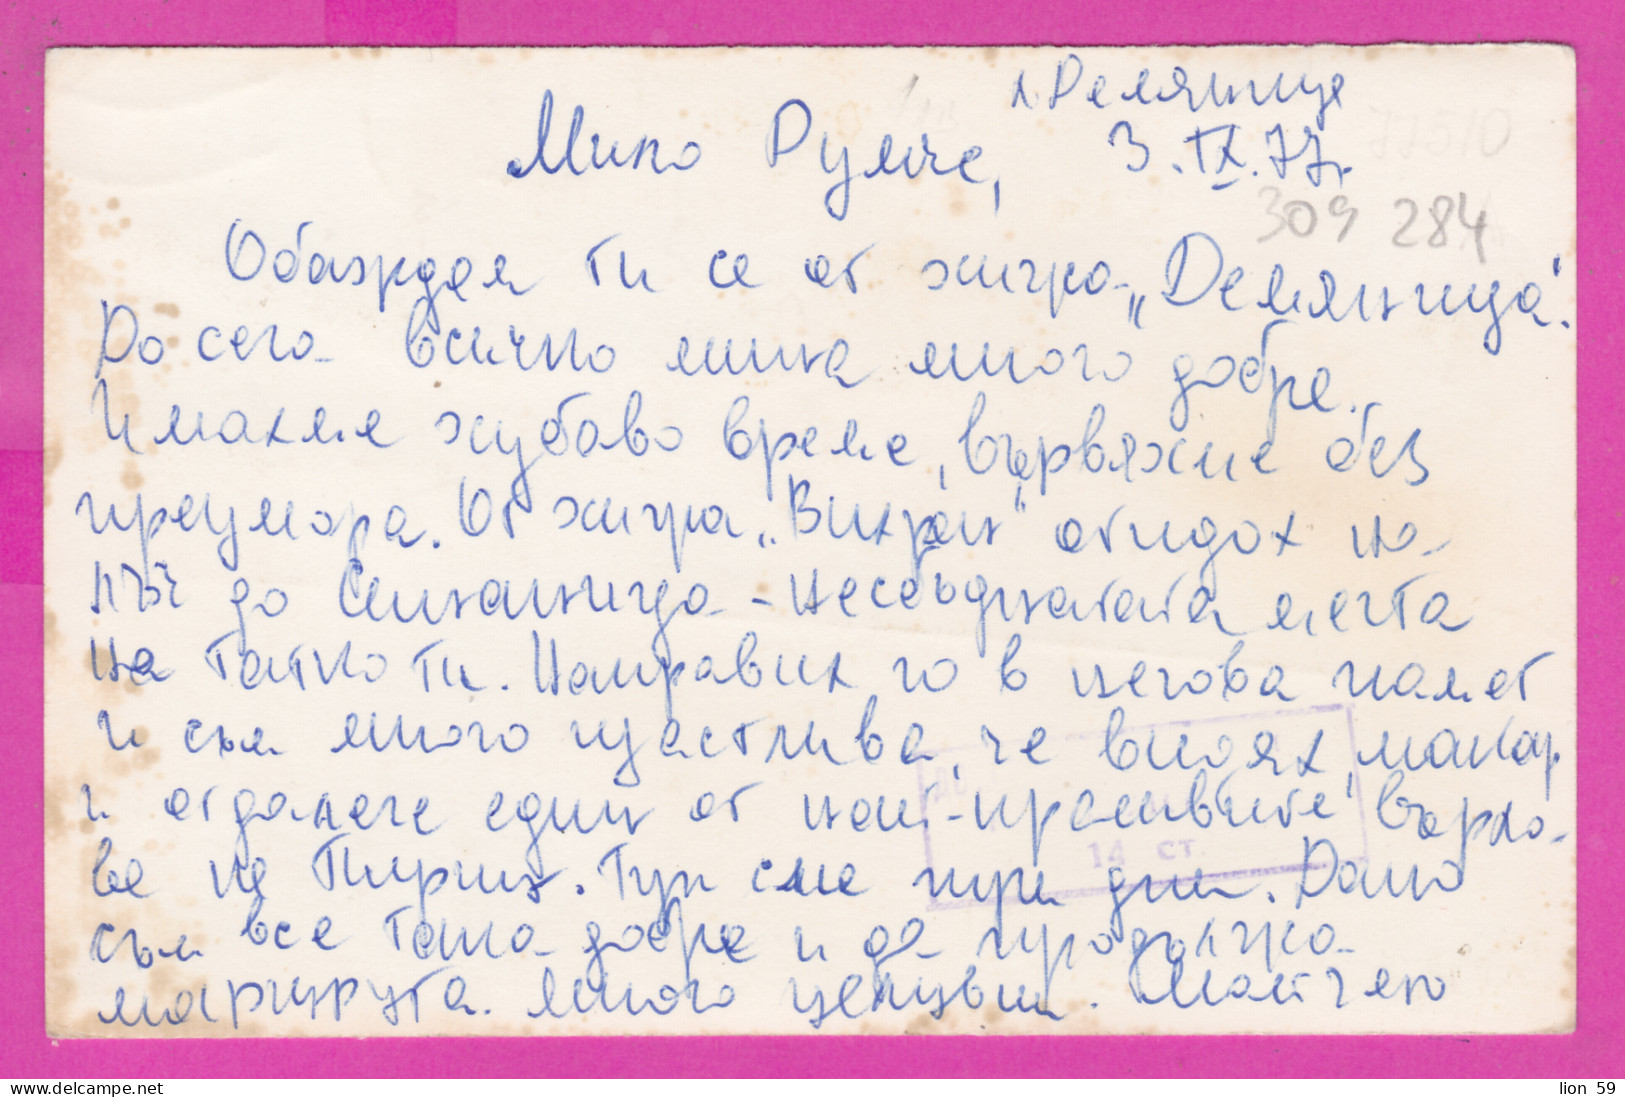 х. Демяница
Мило Румче, 3.IX.77г.
309 284
Обаждам ти се от хижа „Демяница".
До сега всичко мина много добре.
Имахме хубаво време, вървяхме без
преумора. От хижа „Вихрен" отидох на-
лъч до Синаница - несбъднатата мечта
на татко ти. Направих го в негова памет
и съм много щастлива, че видях, макар
и отдалече един от най-красивите върхо-
ве на Пирин. Тук сме три дни. Дано
съм все така добре и да продължа
маршрута. Много целувки. Майчето
14 СТ.
www.delcampe.net
lion 59